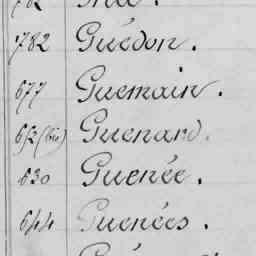 782 Guédon.
677 Guemain.
652 (bis) Guenard.
630 Guenée.
644 Guenées.